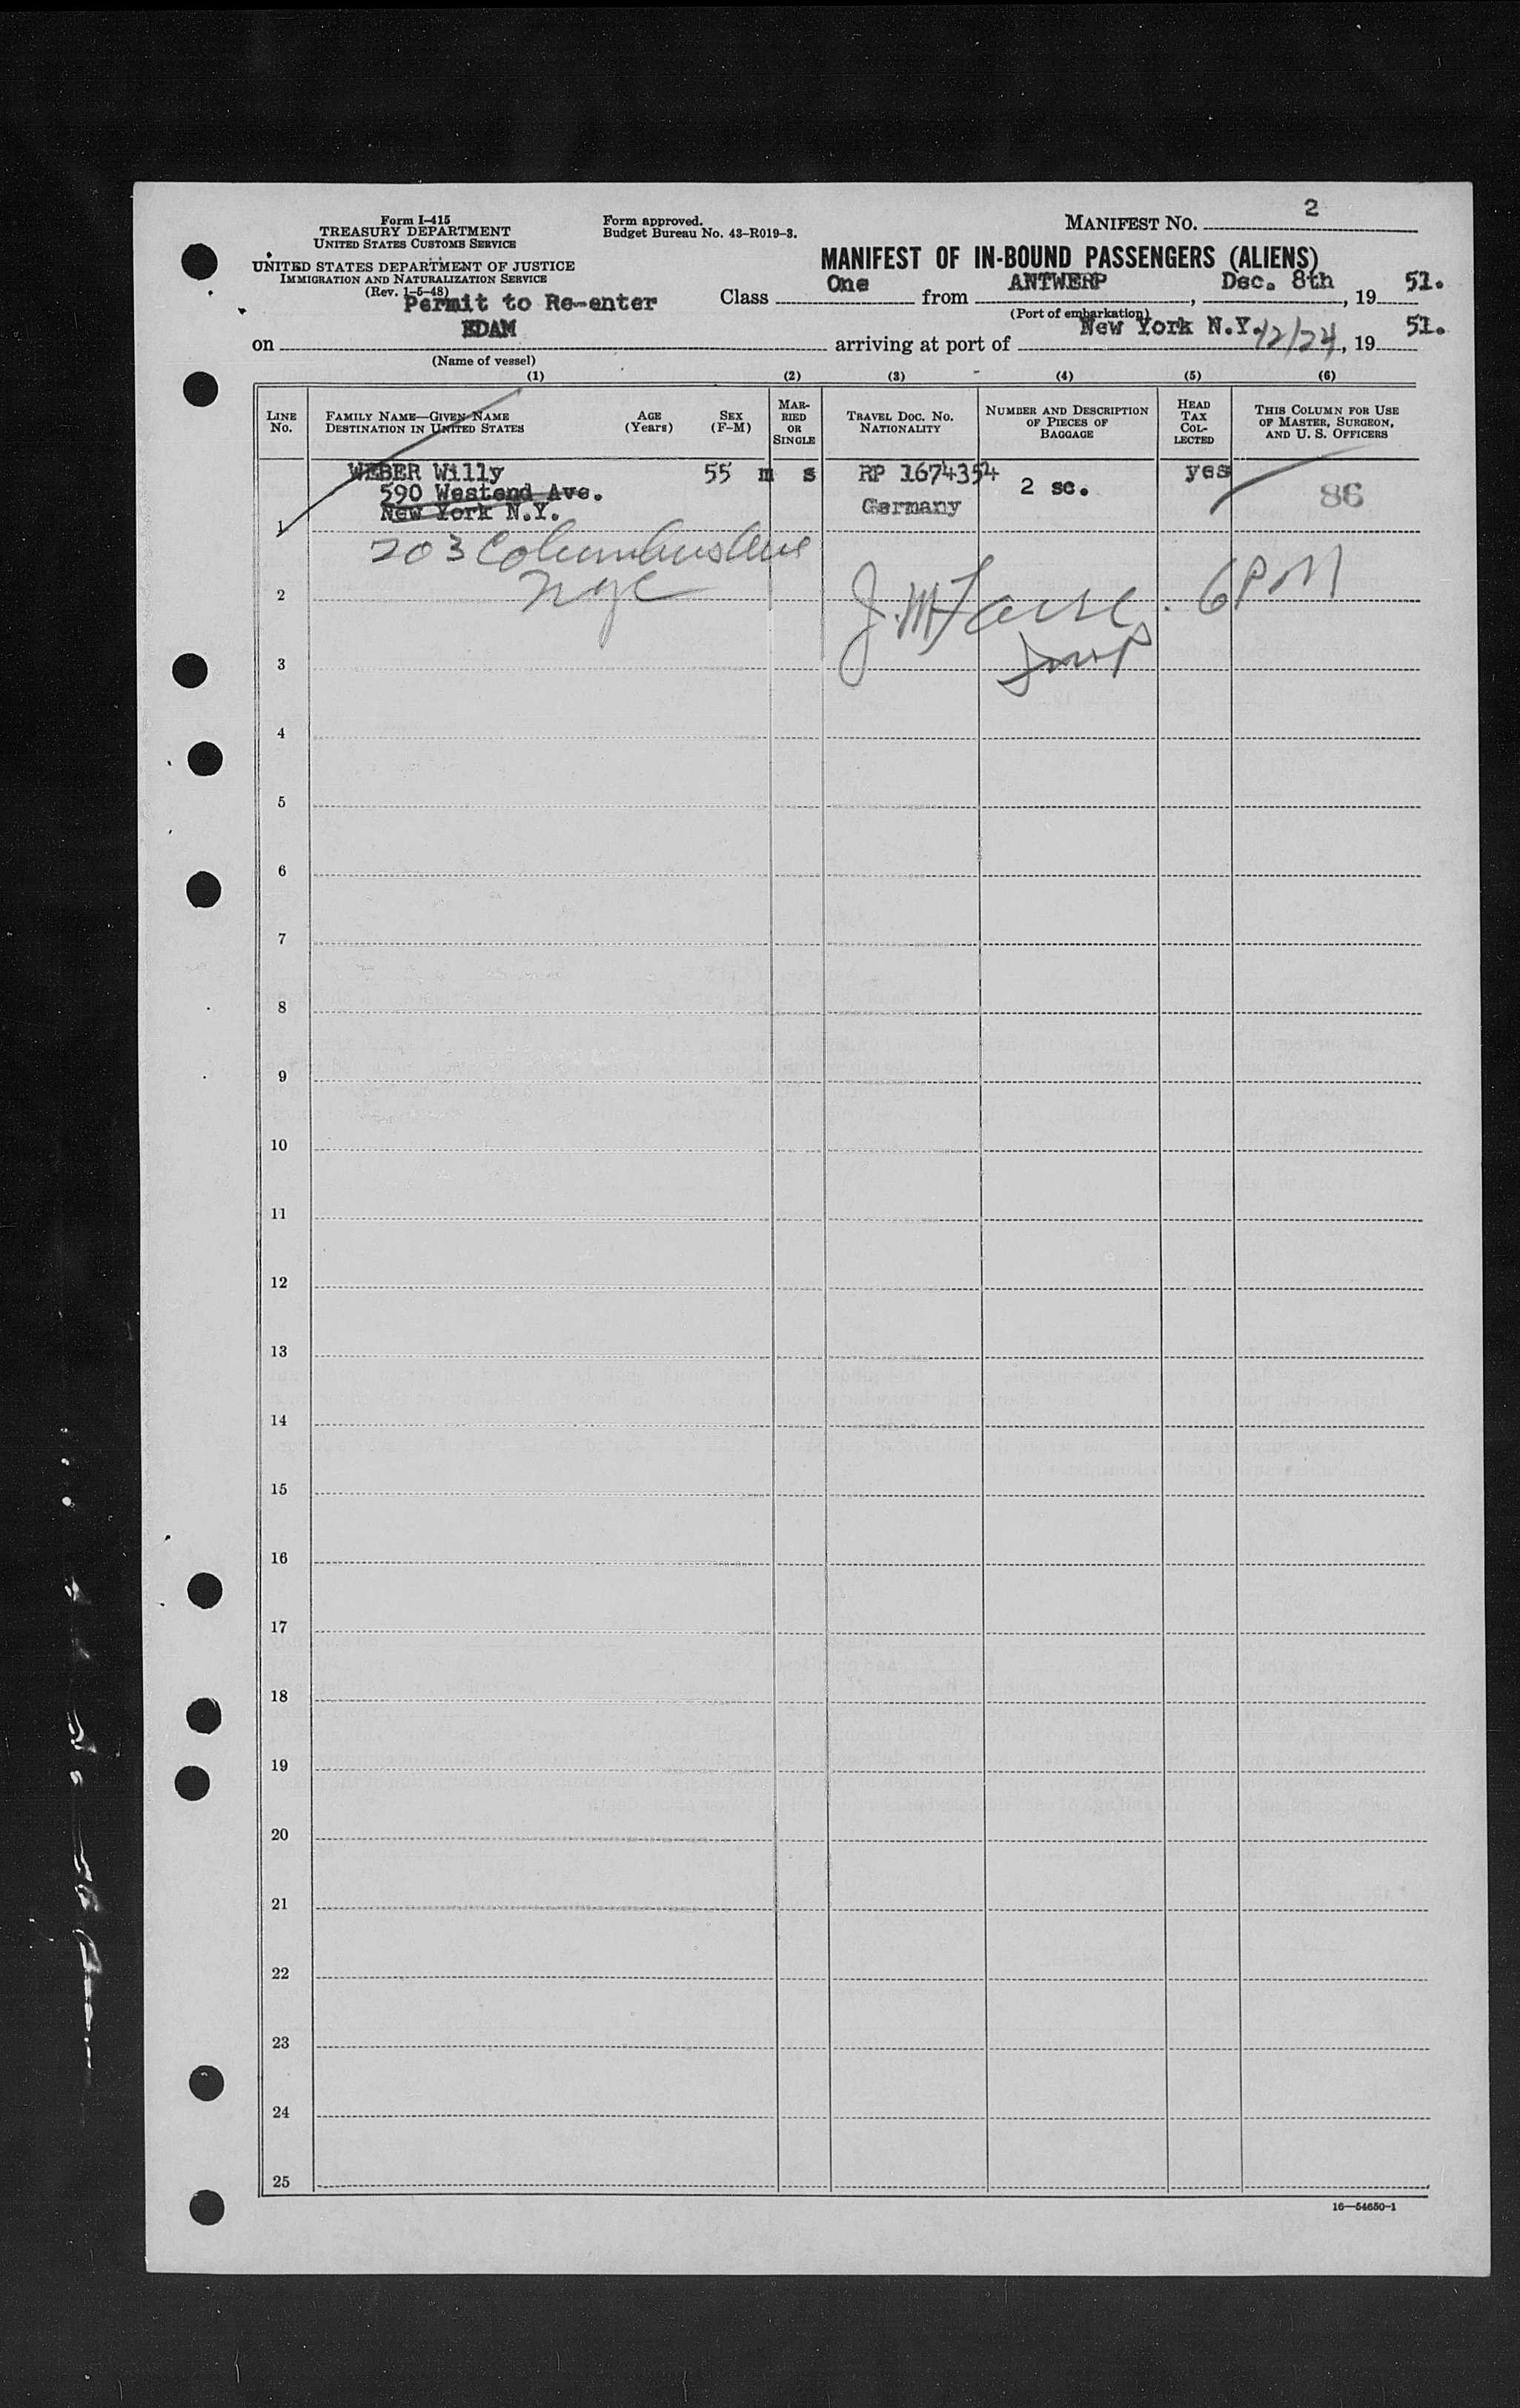 Form I-415
TREASURY DEPARTMENT
UNITED STATES CUSTOMS SERVICE
UNITED STATES DEPARTMENT OF JUSTICE
IMMIGRATION AND NATURALIZATION SERVICE
(Rev. 1-5-48)
Form approved.
Budget Bureau No. 43-R019-3.
MANIFEST NO. 2
MANIFEST OF IN-BOUND PASSENGERS (ALIENS)
Permit to Re-enter
Class One from ANTWERP, Dec. 8th, 19 51.
(Port of embarkation)
on EDAM arriving at port of New York N.Y. 12/24, 19 51.
(Name of vessel)
(1) (2) (3) (4) (5) (6)
LINE No.
FAMILY NAME—GIVEN NAME
DESTINATION IN UNITED STATES
AGE (Years)
SEX (F-M)
MARRIED OR SINGLE
TRAVEL DOC. NO.
NATIONALITY
NUMBER AND DESCRIPTION OF PIECES OF BAGGAGE
HEAD TAX COLLECTED
THIS COLUMN FOR USE OF MASTER, SURGEON, AND U. S. OFFICERS
WEBER Willy 55 m s RP 1674354 2 sc. yes 86
590 Westend Ave. Germany
New York N.Y.
1
203 Columbus Ave
NYC
6 PM
2
3
4
5
6
7
8
9
10
11
12
13
14
15
16
17
18
19
20
21
22
23
24
25
16—54650-1